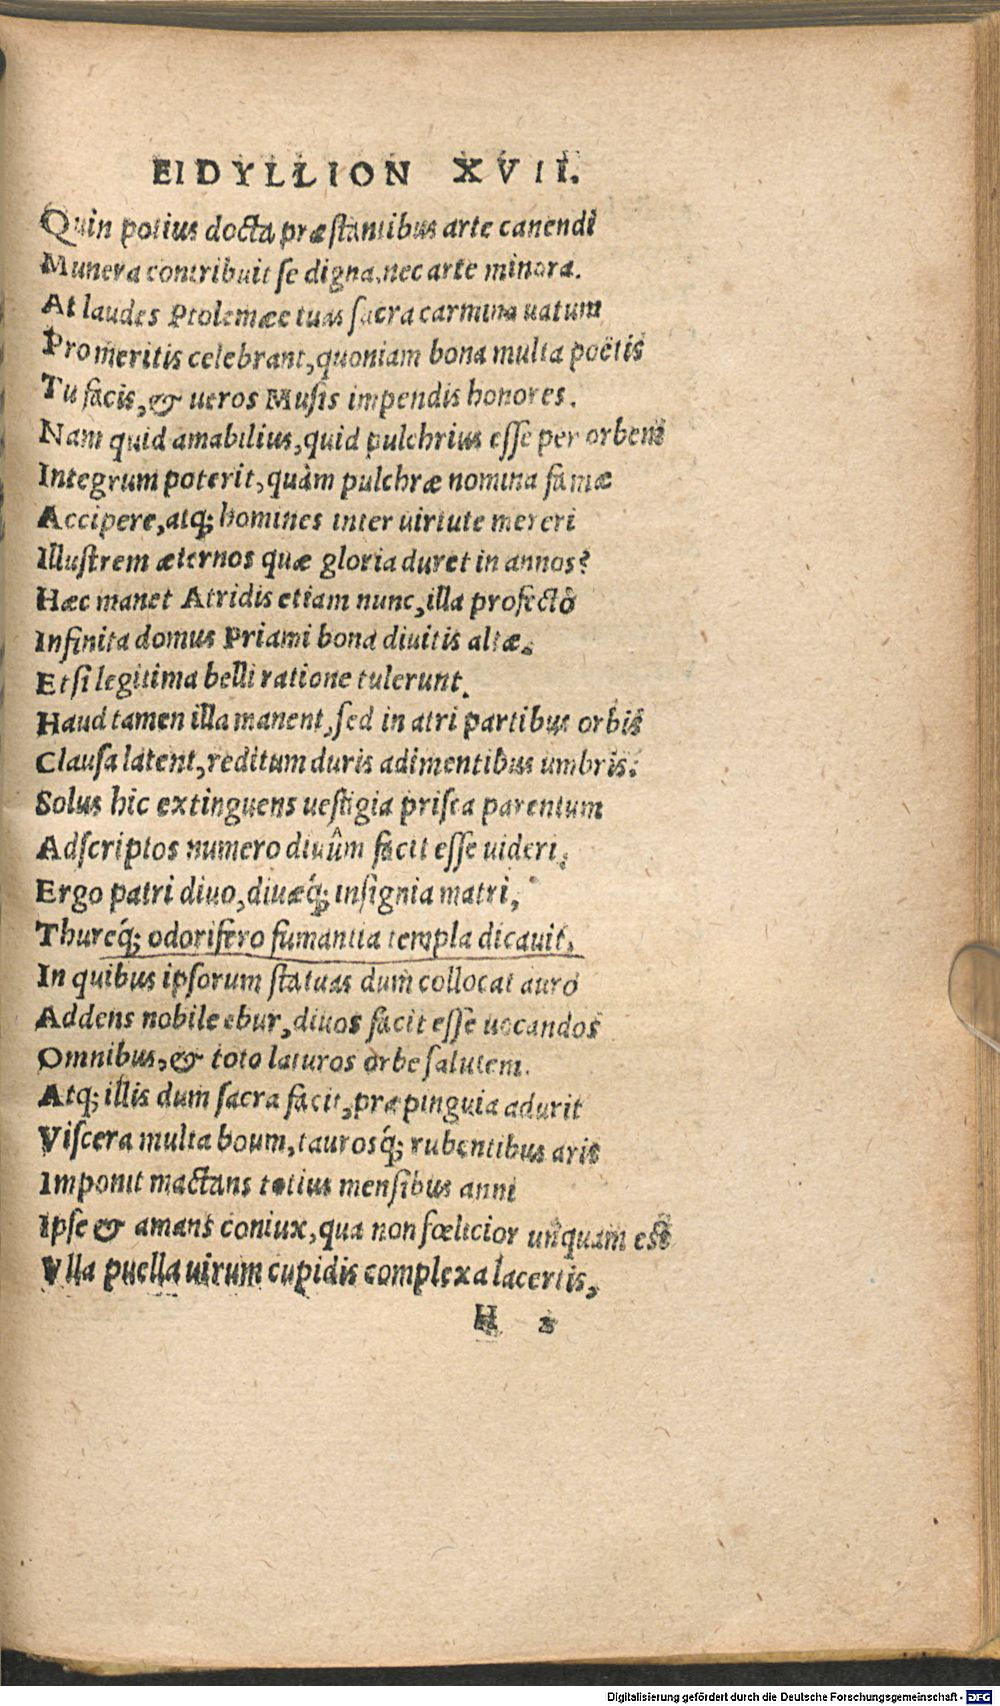 EIDYLLION XVII.
Quin potius docta præstantibus arte canendi
Munera contribuit se digna, nec arte minora.
At laudes Ptolemæe tuas sacra carmina uatum
Pro meritis celebrant, quoniam bona multa poëtis
Tu facis, & ueros Musis impendis honores.
Nam quid amabilius, quid pulchrius esse per orbem
Integrum poterit, quàm pulchræ nomina famæ
Accipere, atq; homines inter uirtute mereri
Illustrem æternos quæ gloria duret in annos?
Hæc manet Atridis etiam nunc, illa profectò
Infinita domus Priami bona diuitis altæ.
Etsi legitima belli ratione tulerunt.
Haud tamen illa manent, sed in atri partibus orbis
Clausa latent, reditum duris adimentibus umbris.
Solus hic extinguens uestigia prisca parentum
Adscriptos numero diuûm facit esse uideri.
Ergo patri diuo, diuæq́; insignia matri,
Thureq́; odorifero fumantia templa dicauit,
In quibus ipsorum statuas dum collocat auro
Addens nobile ebur, diuos facit esse uocandos
Omnibus, & toto laturos orbe salutem.
Atq; illis dum sacra facit, præpinguia adurit
Viscera multa boum, taurosq́; rubentibus aris
Imponit mactans totius mensibus anni
Ipse & amans coniux, qua non fœlicior unquam est
Vlla puella uirum cupidis complexa lacertis,
H 2
Digitalisierung gefördert durch die Deutsche Forschungsgemeinschaft - DFG